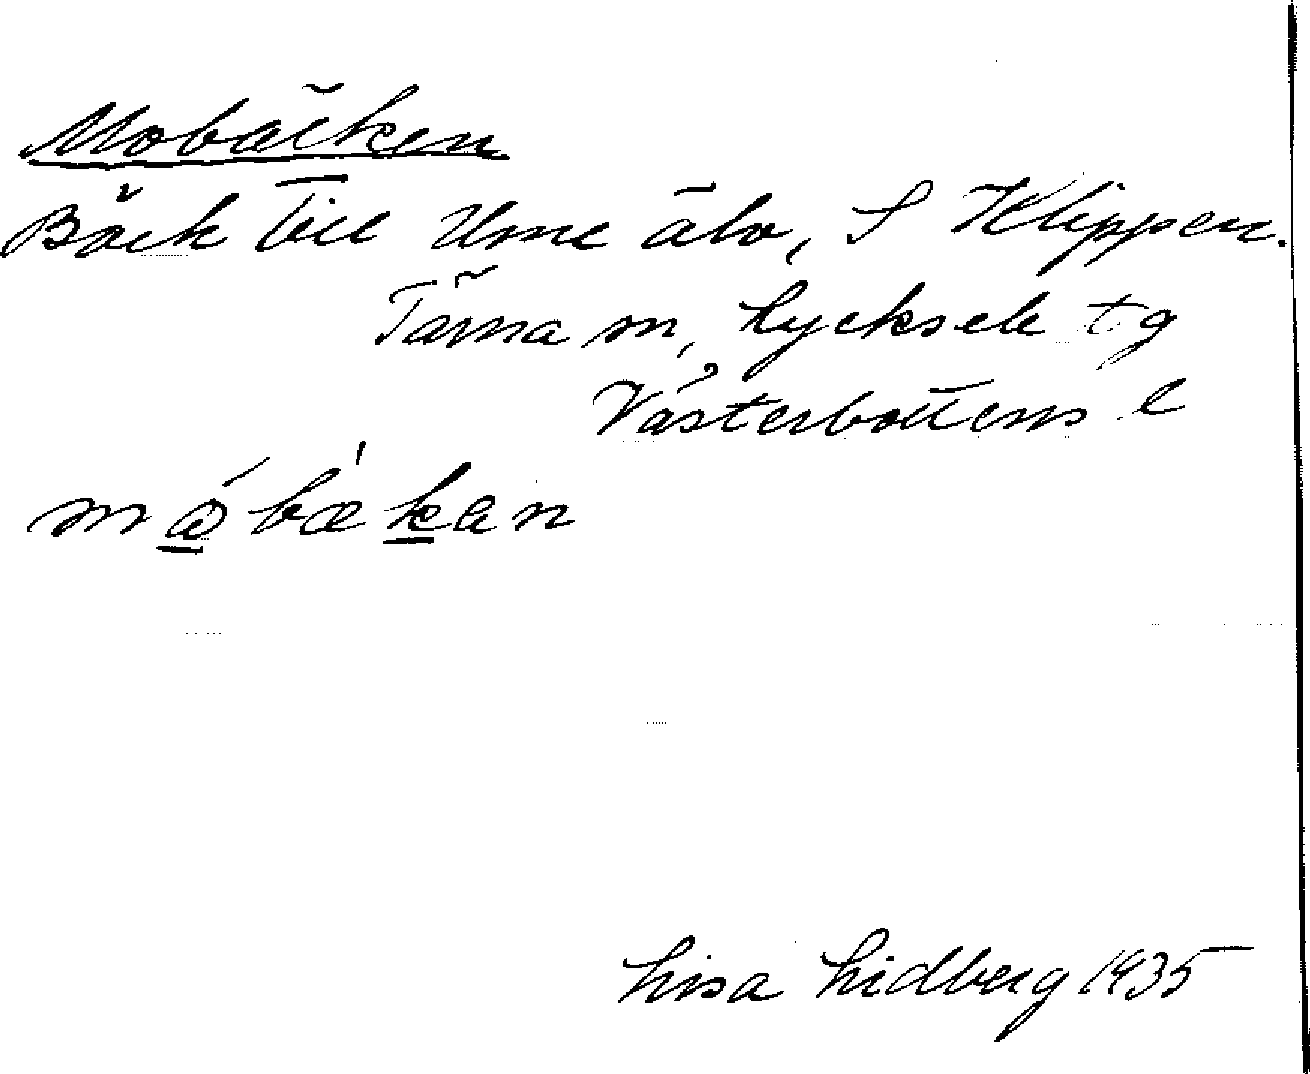 Mobäcken
Bäck till Ume älv, S Klippen.
Tärna sn, Lycksele tg
Västerbottens l
mǻbæ̀kan
Lisa Lidberg 1935